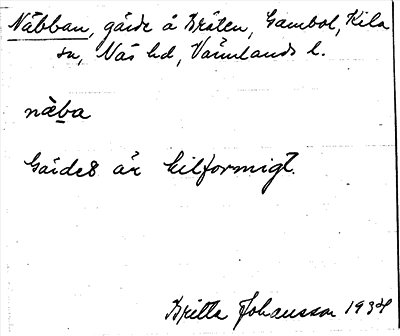 Näbban, gärde å Bråten, Gambol, Kila
sn, Näs hd, Värmlands l.
näba
Gärdet är kilformigt.
Britta Johansson 1934